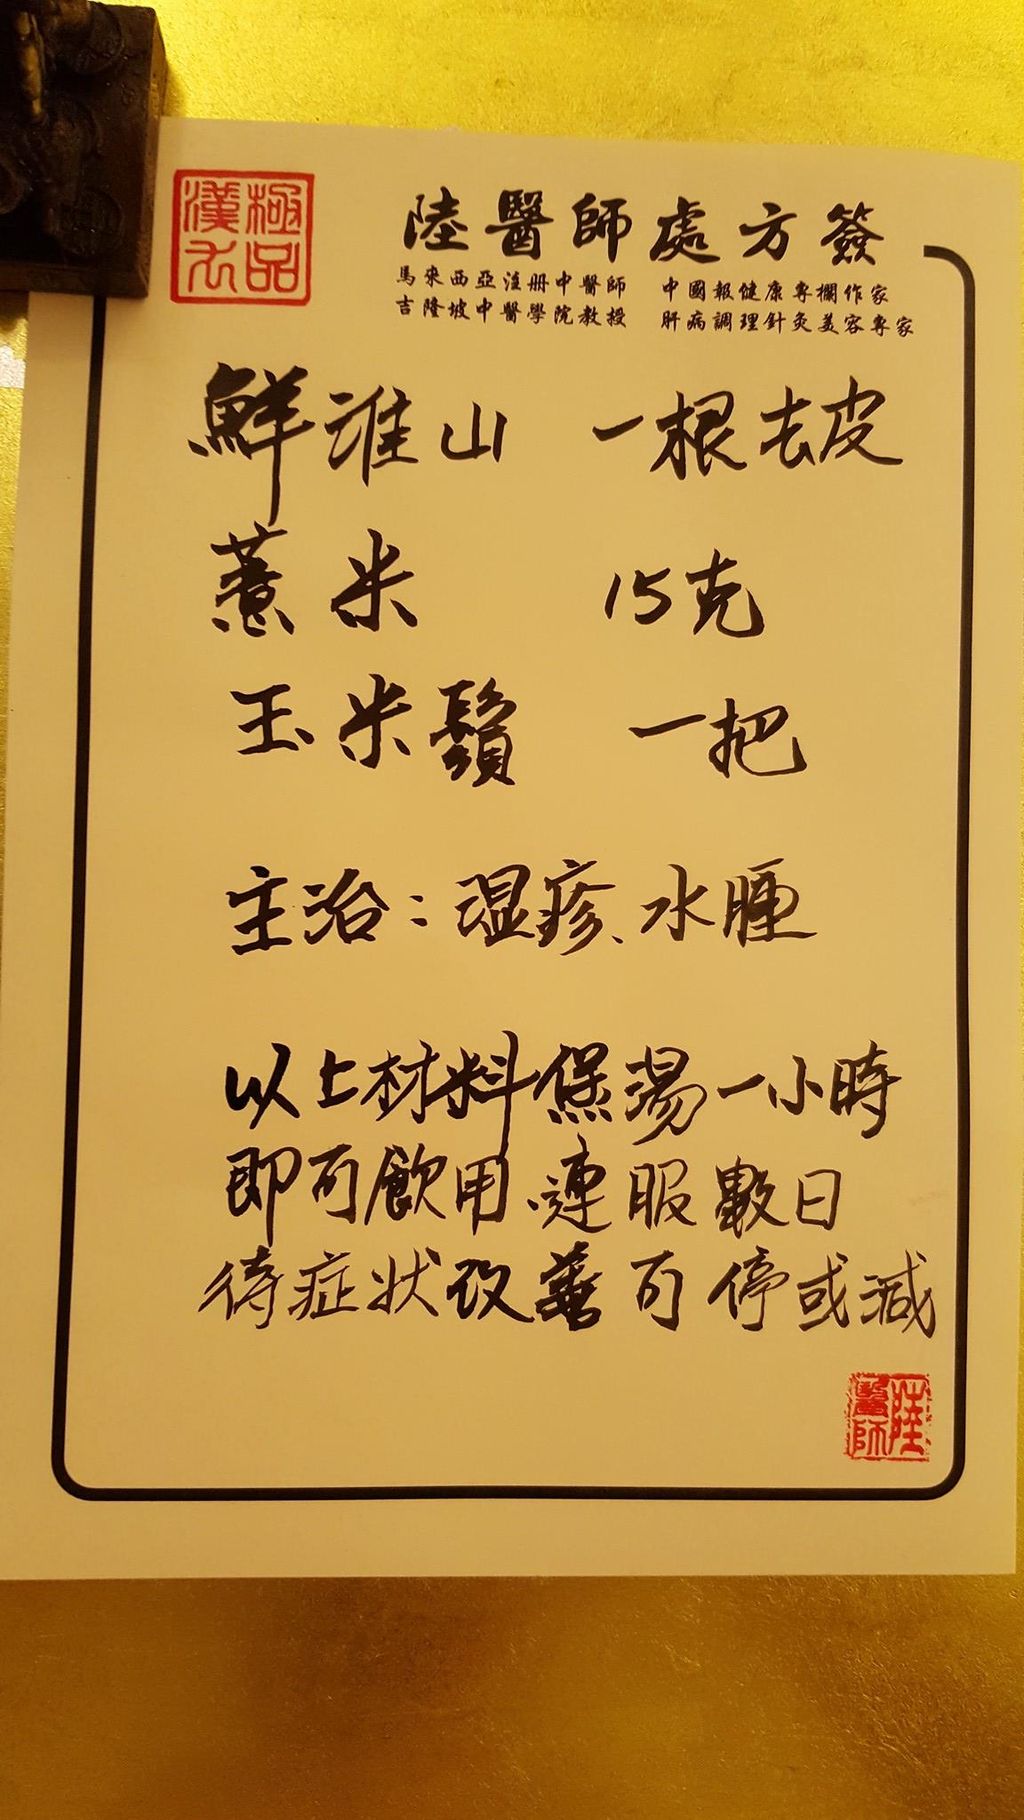 極品
陸醫師處方簽
馬來西亞注册中醫師 中國報健康專欄作家
吉隆坡中醫學院教授 肝病調理針灸美容專家
鮮淮山 一根去皮
薏米 15克
玉米鬚 一把
主治：湿疹、水腫
以上材料煲湯一小時
即可飲用.連服數日
待症狀改善可停或減
陸醫師